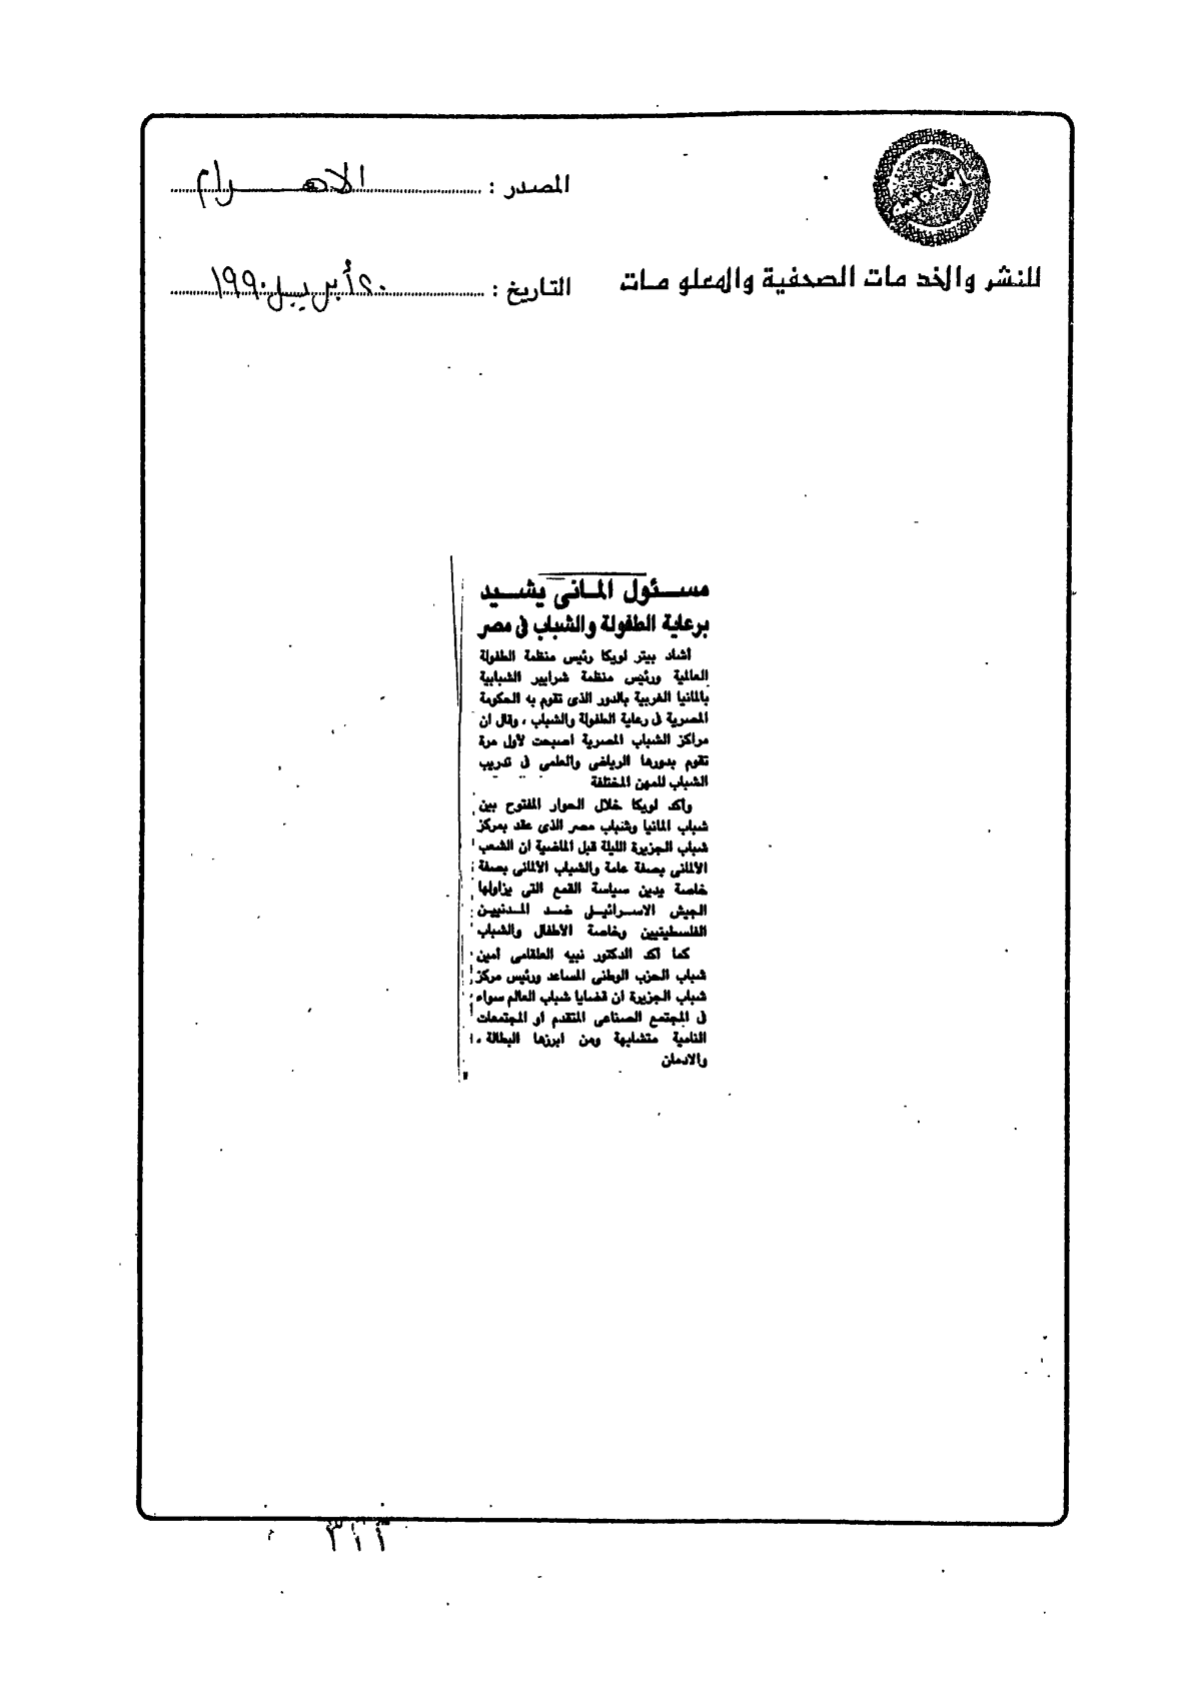 المصدر : الاهرام
للنشر والخدمات الصحفية والمعلومات
التاريخ : ٢٠ أبريل ١٩٩٠
مسئول المانى يشيد
برعاية الطفولة والشباب فى مصر
أشاد بيتر لويكا رئيس منظمة الطفولة
العالمية ورئيس منظمة شرايبر الشبابية
بالمانيا الغربية بالدور الذى تقوم به الحكومة
المصرية فى رعاية الطفولة والشباب ، وقال ان
مراكز الشباب المصرية اصبحت لأول مرة
تقوم بدورها الرياضى والعلمى فى تدريب
الشباب للمهن المختلفة
وأكد لويكا خلال الحوار المفتوح بين
شباب المانيا وشباب مصر الذى عقد بمركز
شباب الجزيرة الليلة قبل الماضية ان الشعب
الالمانى بصفة عامة والشباب الالمانى بصفة
خاصة يدين سياسة القمع التى يزاولها
الجيش الاسرائيلى ضد المدنيين
الفلسطينيين وخاصة الأطفال والشباب
كما أكد الدكتور نبيه العلقامى أمين
شباب الحزب الوطنى المساعد ورئيس مركز
شباب الجزيرة ان قضايا شباب العالم سواء
فى المجتمع الصناعى المتقدم او المجتمعات
النامية متشابهة ومن ابرزها البطالة ،
والادمان